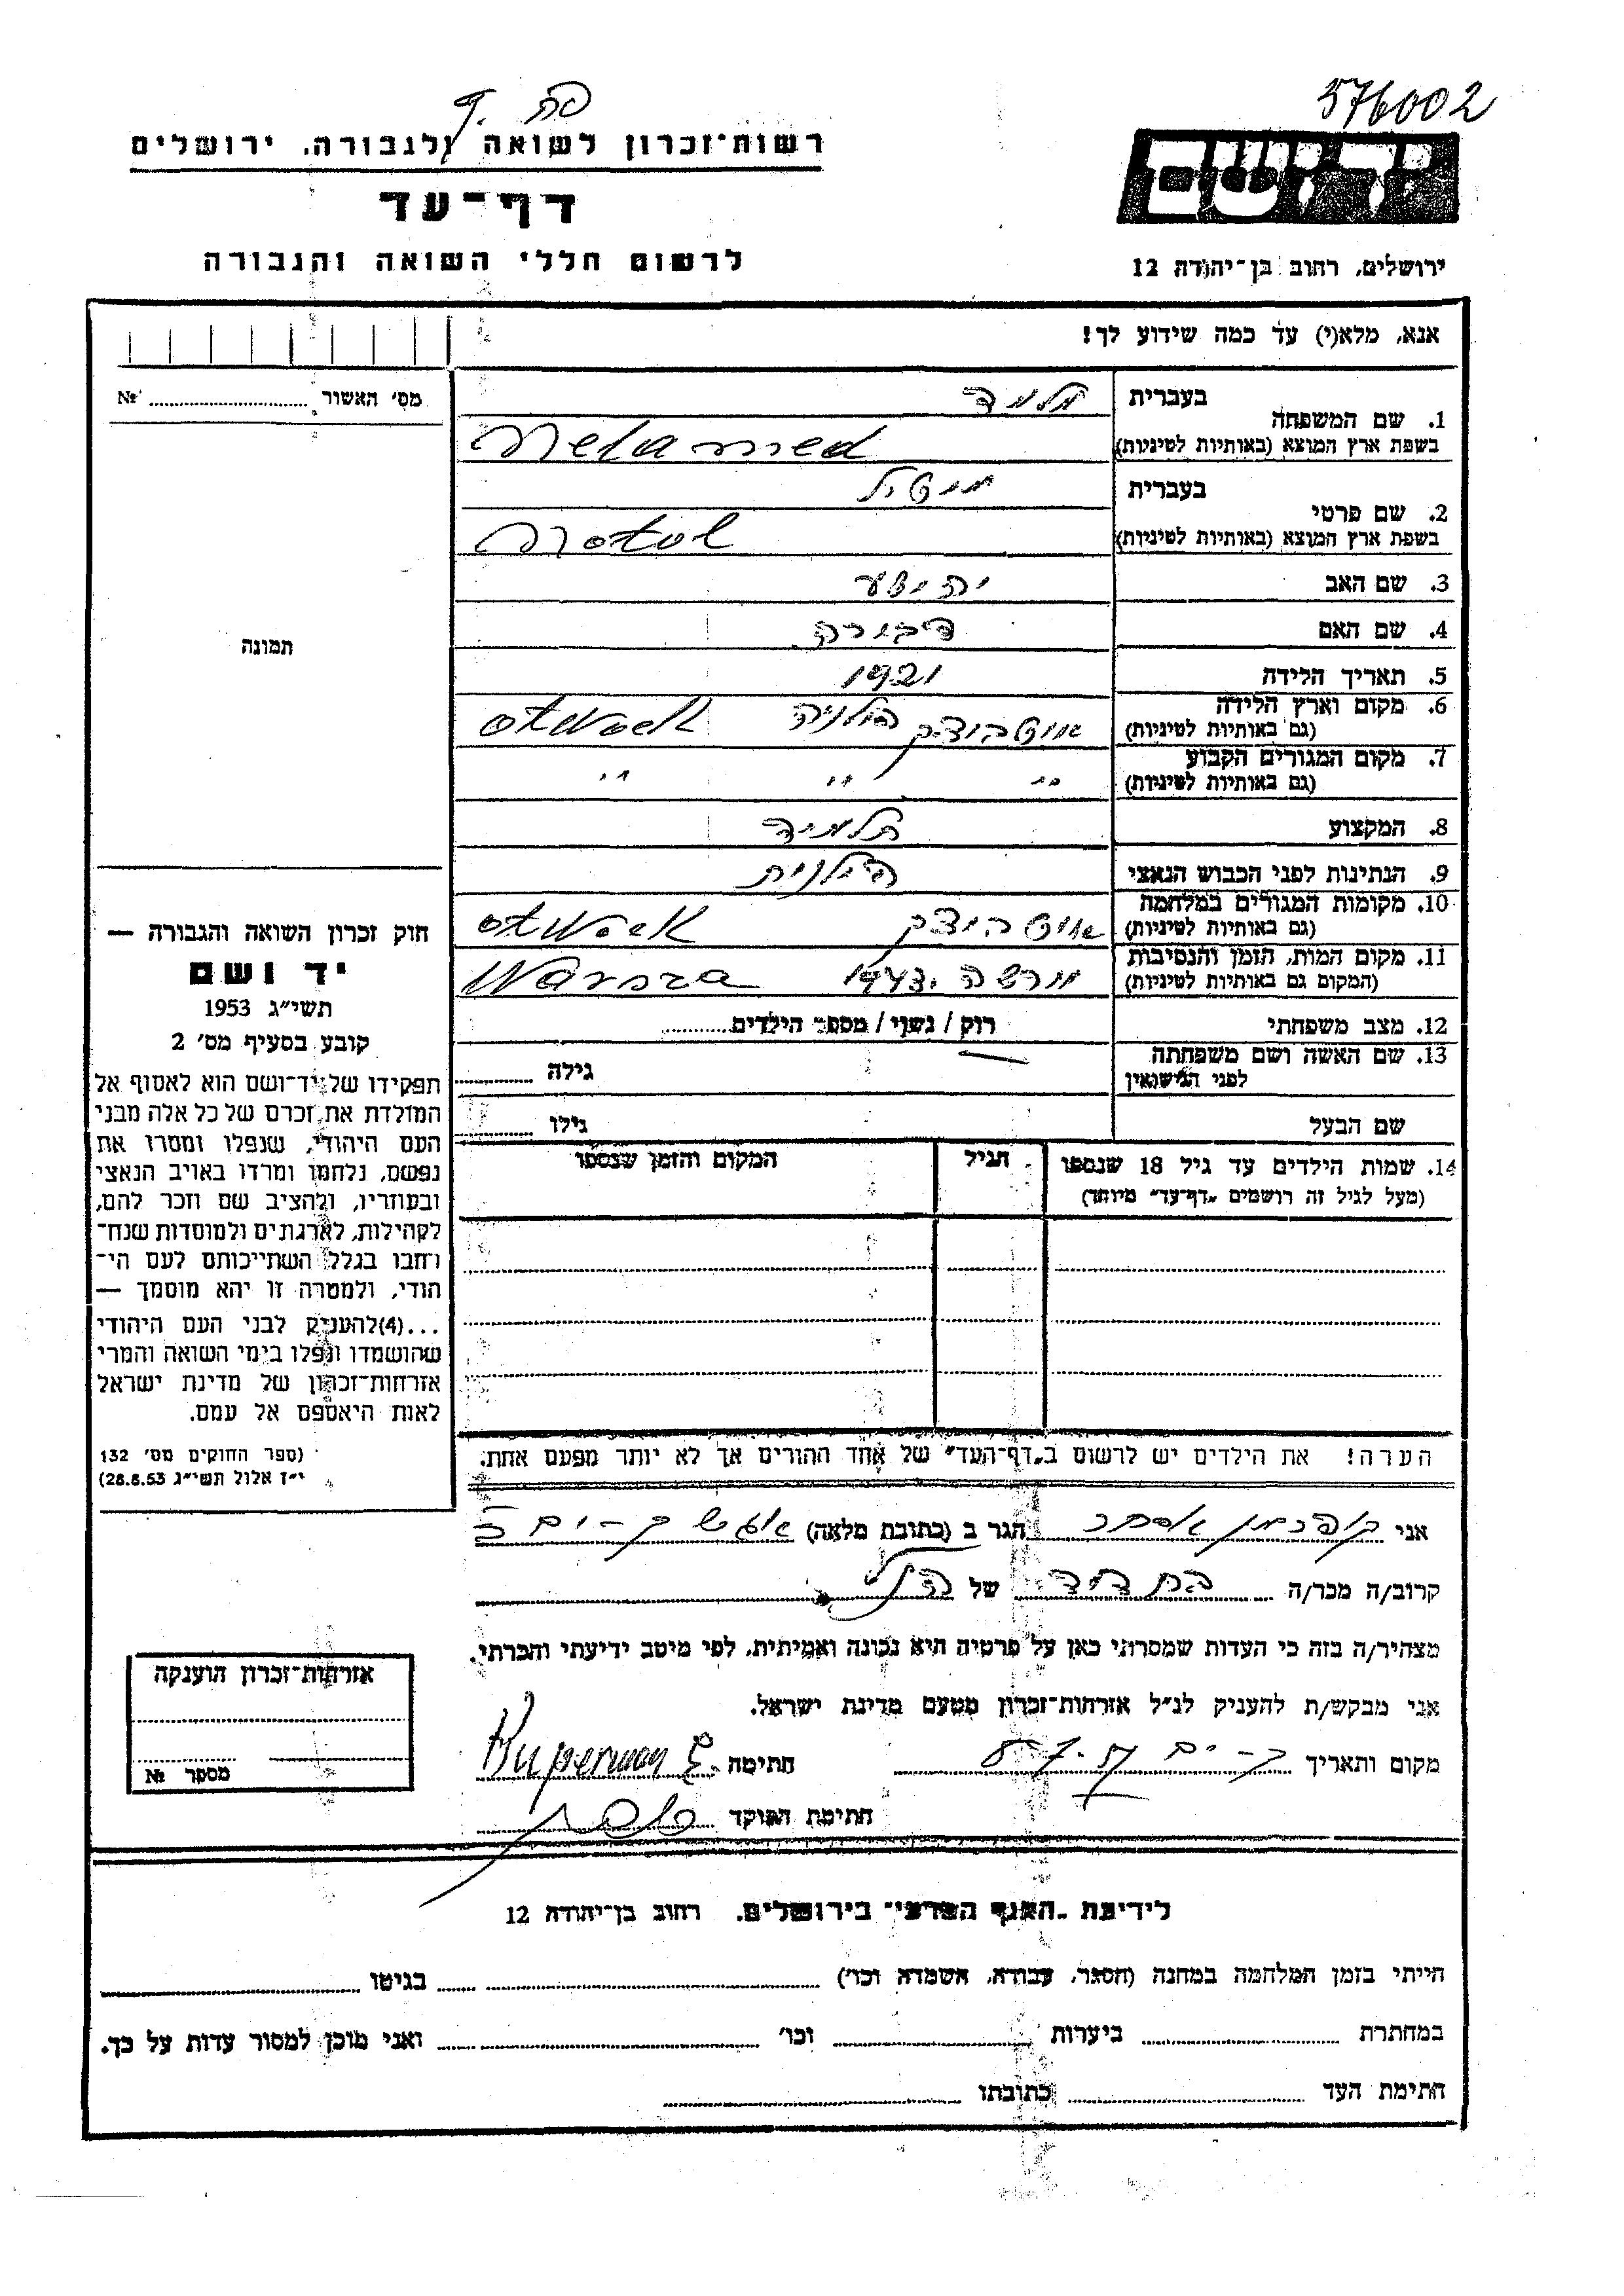 576002
רשות־זכרון לשואה ולגבורה, ירושלים
יד ושם
דף־עד
לרשום חללי השואה והגבורה
ירושלים, רחוב בן־יהודה 12
אנא, מלא(י) עד כמה שידוע לך!
מס' האשור ........ №
בעברית מלמד
1. שם המשפחה
בשפת ארץ המוצא (באותיות לטיניות) Melamed
בעברית מוטל
2. שם פרטי
בשפת ארץ המוצא (באותיות לטיניות) Motul
3. שם האב יהושע
4. שם האם דבורה
תמונה
5. תאריך הלידה 1921
6. מקום וארץ הלידה אוטבוצק פולניה Otwock
(גם באותיות לטיניות)
7. מקום המגורים הקבוע
(גם באותיות לטיניות) " " "
8. המקצוע תלמיד
9. הנתינות לפני הכבוש הנאצי פולנית
10. מקומות המגורים במלחמה אוטבוצק Otwock
(גם באותיות לטיניות)
11. מקום המות, הזמן והנסיבות ורשה 1943 Warsza
(המקום גם באותיות לטיניות)
12. מצב משפחתי רוק / נשוי / מספר הילדים........
13. שם האשה ושם משפחתה
לפני הנישואין גילה ........
שם הבעל גילו ........
14. שמות הילדים עד גיל 18 שנספו הגיל המקום והזמן שנספו
(מעל לגיל זה רושמים "דף־עד" מיוחד)
חוק זכרון השואה והגבורה —
יד ושם
תשי"ג 1953
קובע בסעיף מס' 2
תפקידו של יד־ושם הוא לאסוף אל
המולדת את זכרם של כל אלה מבני
העם היהודי, שנפלו ומסרו את
נפשם, נלחמו ומרדו באויב הנאצי
ובעוזריו, ולהציב שם וזכר להם,
לקהילות, לארגונים ולמוסדות שנח־
רחבו בגלל השתייכותם לעם הי־
הודי, ולמטרה זו יהא מוסמך —
...(4)להעניק לבני העם היהודי
שהושמדו ונפלו בימי השואה והמרי
אזרחות־זכרון של מדינת ישראל
לאות היאספם אל עמם.
(ספר החוקים מס' 132
י"ז אלול תשי"ג 28.8.53)
הערה! את הילדים יש לרשום ב"דף־העד" של אחד ההורים אך לא יותר מפעם אחת.
אני קופרמן אסתר הגר ב (כתובת מלאה)
קרוב/ה מכר/ה בת דוד של הנ"ל
מצהיר/ה בזה כי העדות שמסרתי כאן על פרטיה היא נכונה ואמיתית, לפי מיטב ידיעתי והכרתי.
אני מבקש/ת להעניק לנ"ל אזרחות־זכרון מטעם מדינת ישראל.
מקום ותאריך חתימה Kuperman E.
חתימת הפוקד
אזרחות־זכרון הוענקה
מספר №
לידיעת "האגף המרכזי" בירושלים, רחוב בן־יהודה 12
הייתי בזמן המלחמה במחנה (הסגר, עבודה, השמדה וכו') ........ בגיטו ........
במחתרת ........ ביערות ........ וכו' ........ ואני מוכן למסור עדות על כך.
חתימת העד ........ כתובתו ........